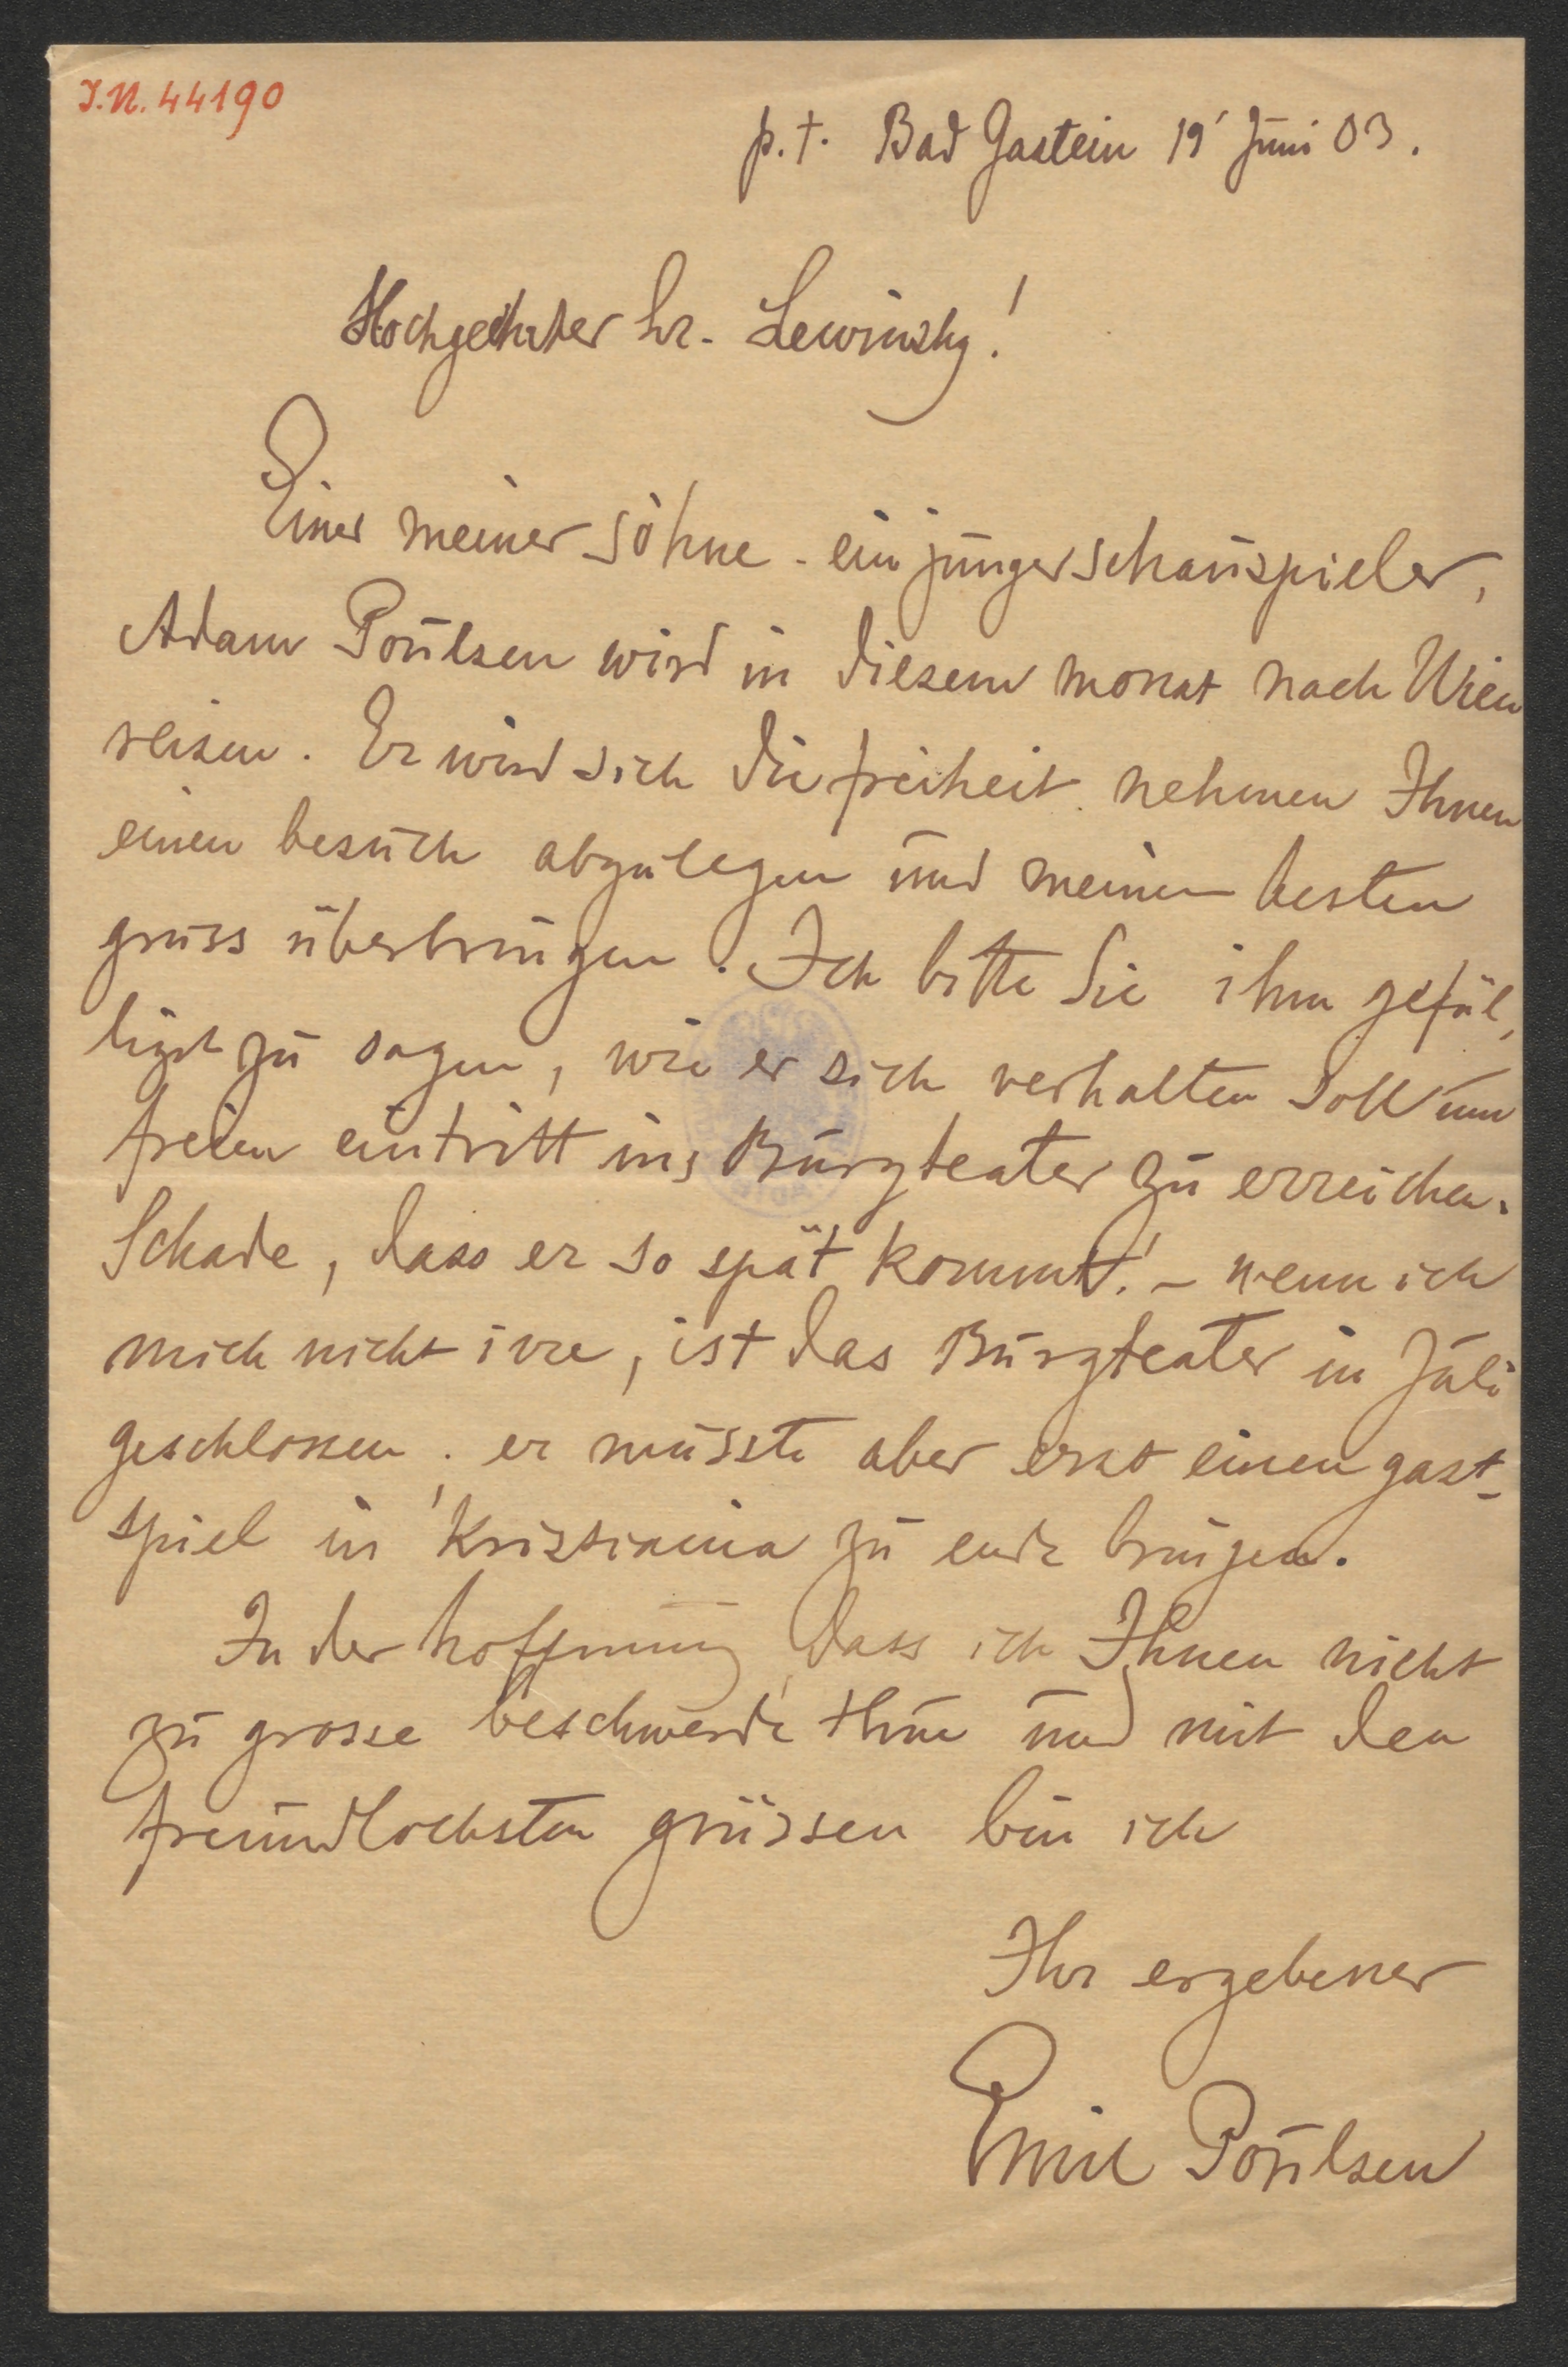 I.N. 44190
p.t. Bad Gastein 19' Juni 03.
Hochgeehrter hr. Lewinsky!
Einer meiner söhne - ein junger schauspieler,
Adam Poulsen wird in diesem monat nach Wien
reisen. Er wird sich die freiheit nehmen Ihnen
einen besuch abzulegen und meinen besten
gruss überbringen. Ich bitte Sie ihm gefäl,
ligst zu sagen, wie er sich verhalten soll um
freien eintritt ins Burgteater zu erreichen.
Schade, dass er so spät kommt! - wenn ich
mich nicht irre, ist das Burgteater in Juli
geschlossen; er müsste aber erst einen gast-
spiel in Kristiania zu ende bringen.
In der hoffnung, dass ich Ihnen nicht
zu grosse beschwerde thue und mit den
freundlochsten grüssen bin ich
Ihr ergebener
Emil Poulsen